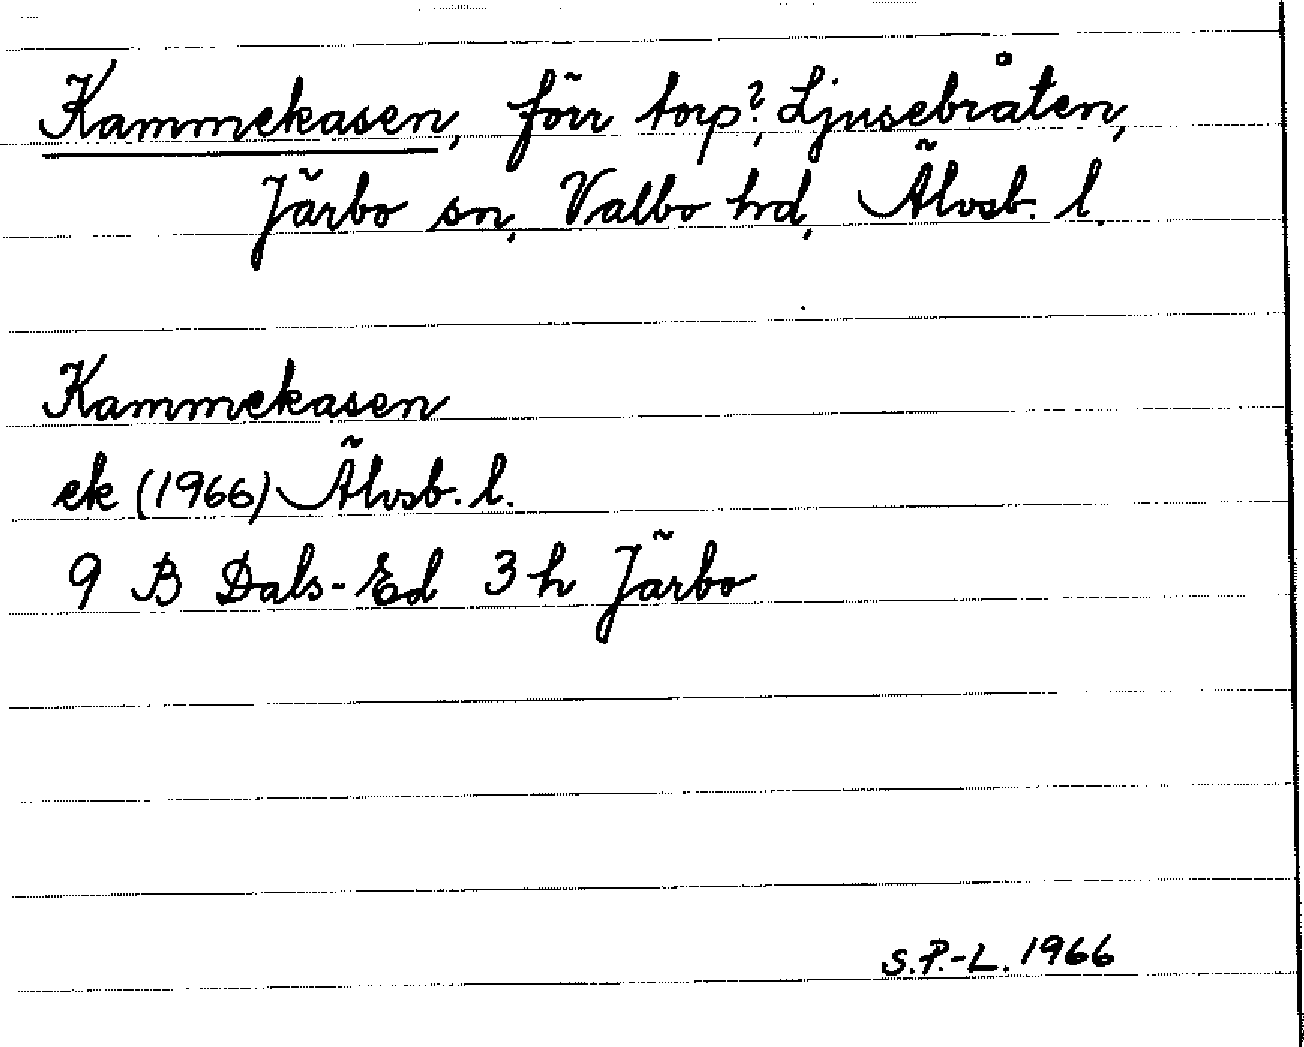 Kammekasen, förr torp?, Ljusebråten,
Järbo sn, Valbo hd, Älvsb. l.
Kammekasen
ek (1966) Älvsb. l.
9 B Dals-Ed 3 h Järbo
S.P.-L. 1966